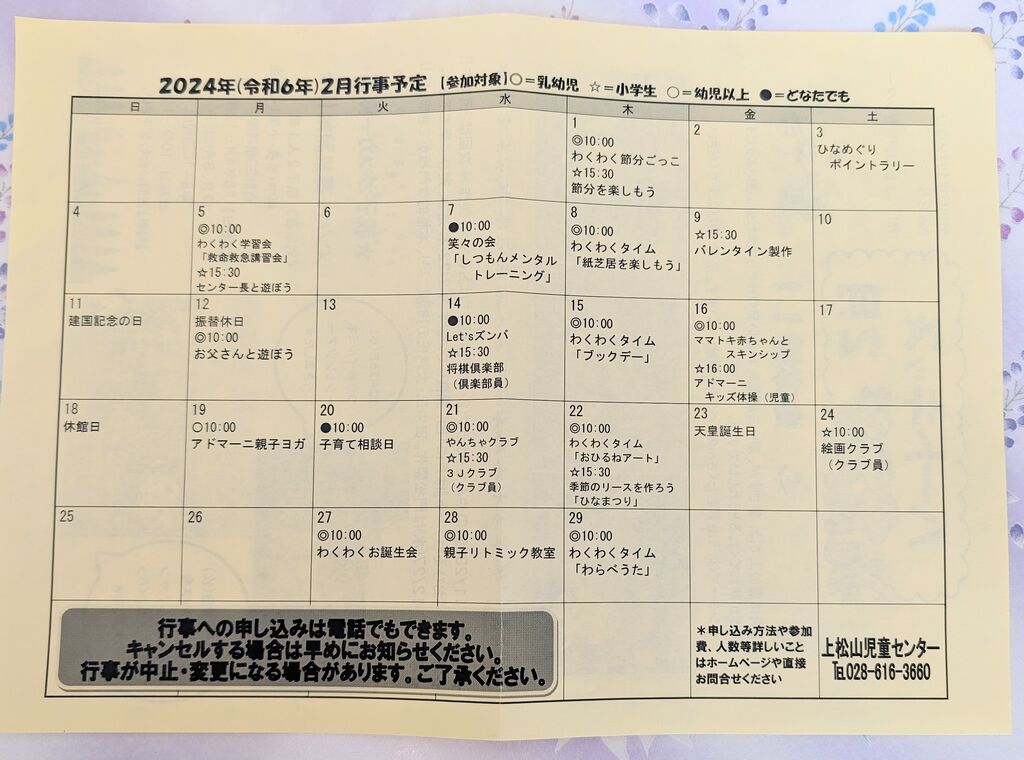 2024年(令和6年)2月行事予定 【参加対象】○=乳幼児 ☆=小学生 ○=幼児以上 ●=どなたでも
日 月 火 水 木 金 土
1
◎10:00
わくわく節分ごっこ
☆15:30
節分を楽しもう
2
3
ひなめぐり
ポイントラリー
4
5
◎10:00
わくわく学習会
「救命救急講習会」
☆15:30
センター長と遊ぼう
6
7
●10:00
笑々の会
「しつもんメンタル
トレーニング」
8
◎10:00
わくわくタイム
「紙芝居を楽しもう」
9
☆15:30
バレンタイン製作
10
11
建国記念の日
12
振替休日
◎10:00
お父さんと遊ぼう
13
14
●10:00
Let'sズンバ
☆15:30
将棋倶楽部
(倶楽部員)
15
◎10:00
わくわくタイム
「ブックデー」
16
◎10:00
ママトキ赤ちゃんと
スキンシップ
☆16:00
アドマーニ
キッズ体操(児童)
17
18
休館日
19
○10:00
アドマーニ親子ヨガ
20
●10:00
子育て相談日
21
◎10:00
やんちゃクラブ
☆15:30
3Jクラブ
(クラブ員)
22
◎10:00
わくわくタイム
「おひるねアート」
☆15:30
季節のリースを作ろう
「ひなまつり」
23
天皇誕生日
24
☆10:00
絵画クラブ
(クラブ員)
25
26
27
◎10:00
わくわくお誕生会
28
◎10:00
親子リトミック教室
29
◎10:00
わくわくタイム
「わらべうた」
行事への申し込みは電話でもできます。
キャンセルする場合は早めにお知らせください。
行事が中止・変更になる場合があります。ご了承ください。
*申し込み方法や参加
費、人数等詳しいこと
はホームページや直接
お問合せください
上松山児童センター
℡028-616-3660